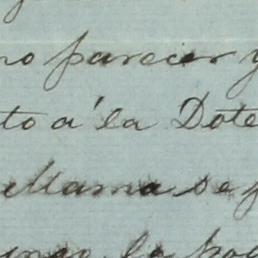 no parecer y
to a' la Dote
Mama se
la